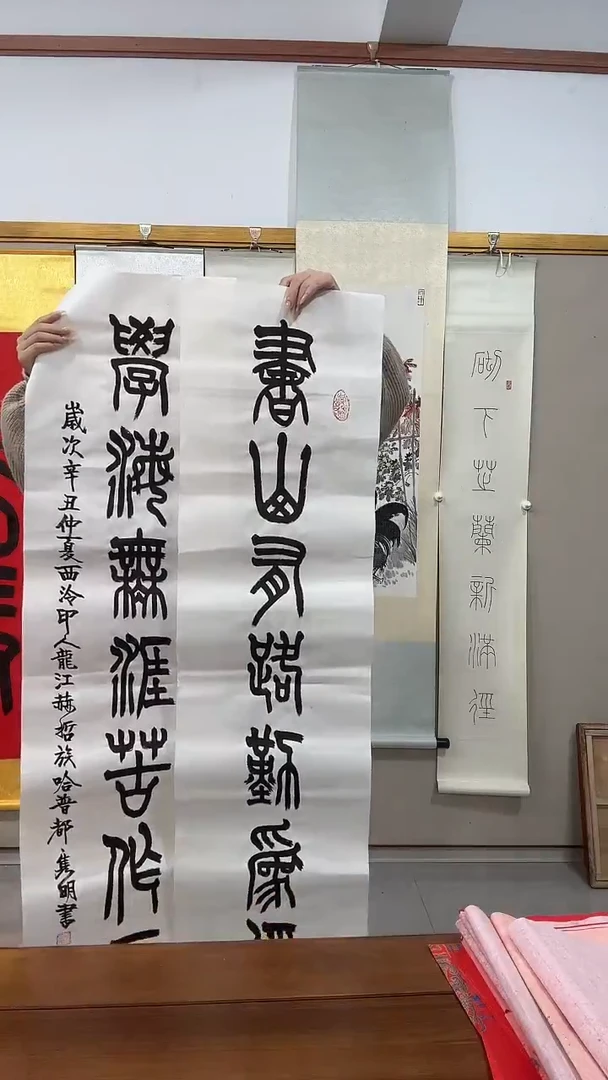 書山有路勤爲
學海無涯苦作
歲次辛丑仲夏西泠印人龍江赫哲族哈普都隽明書
砌下芷蘭新滿徑